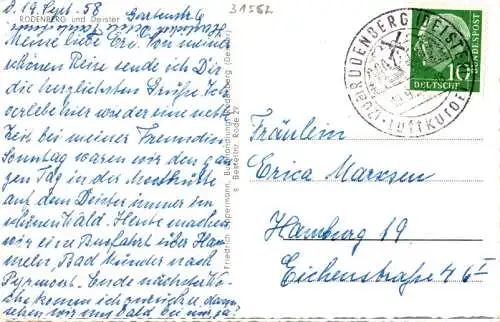 31552
D. 19. Sept. 58
Gartenstr. 6
RODENBERG und Deister
Meine liebe Erica. Von meiner
schönen Reise sende ich Dir
die herzlichsten Grüße. Ich
verlebe hier wieder eine nette
Zeit bei meiner Freundin
Sonntag waren wir den gan-
zen Tag in der Mooshütte
auf dem Deister immer im
schönen Wald. Heute machen
wir eine Busfahrt über Ha-
meln, Bad Münder nach
Pyrmont. Ende nächster Wo-
che komme ich zurück u. dann
sehen wir uns bald bei mir ja?
Friedrich Oppermann, Buchhandlung, Rodenberg (Deister)
Bestellnr. Rode 27
RODENBERG (DEISTER)
LUFTKURORT
DEUTSCHE
BUNDESPOST
10
Fräulein
Erica Marxsen
Hamburg 19
Eichenstraße 46 I